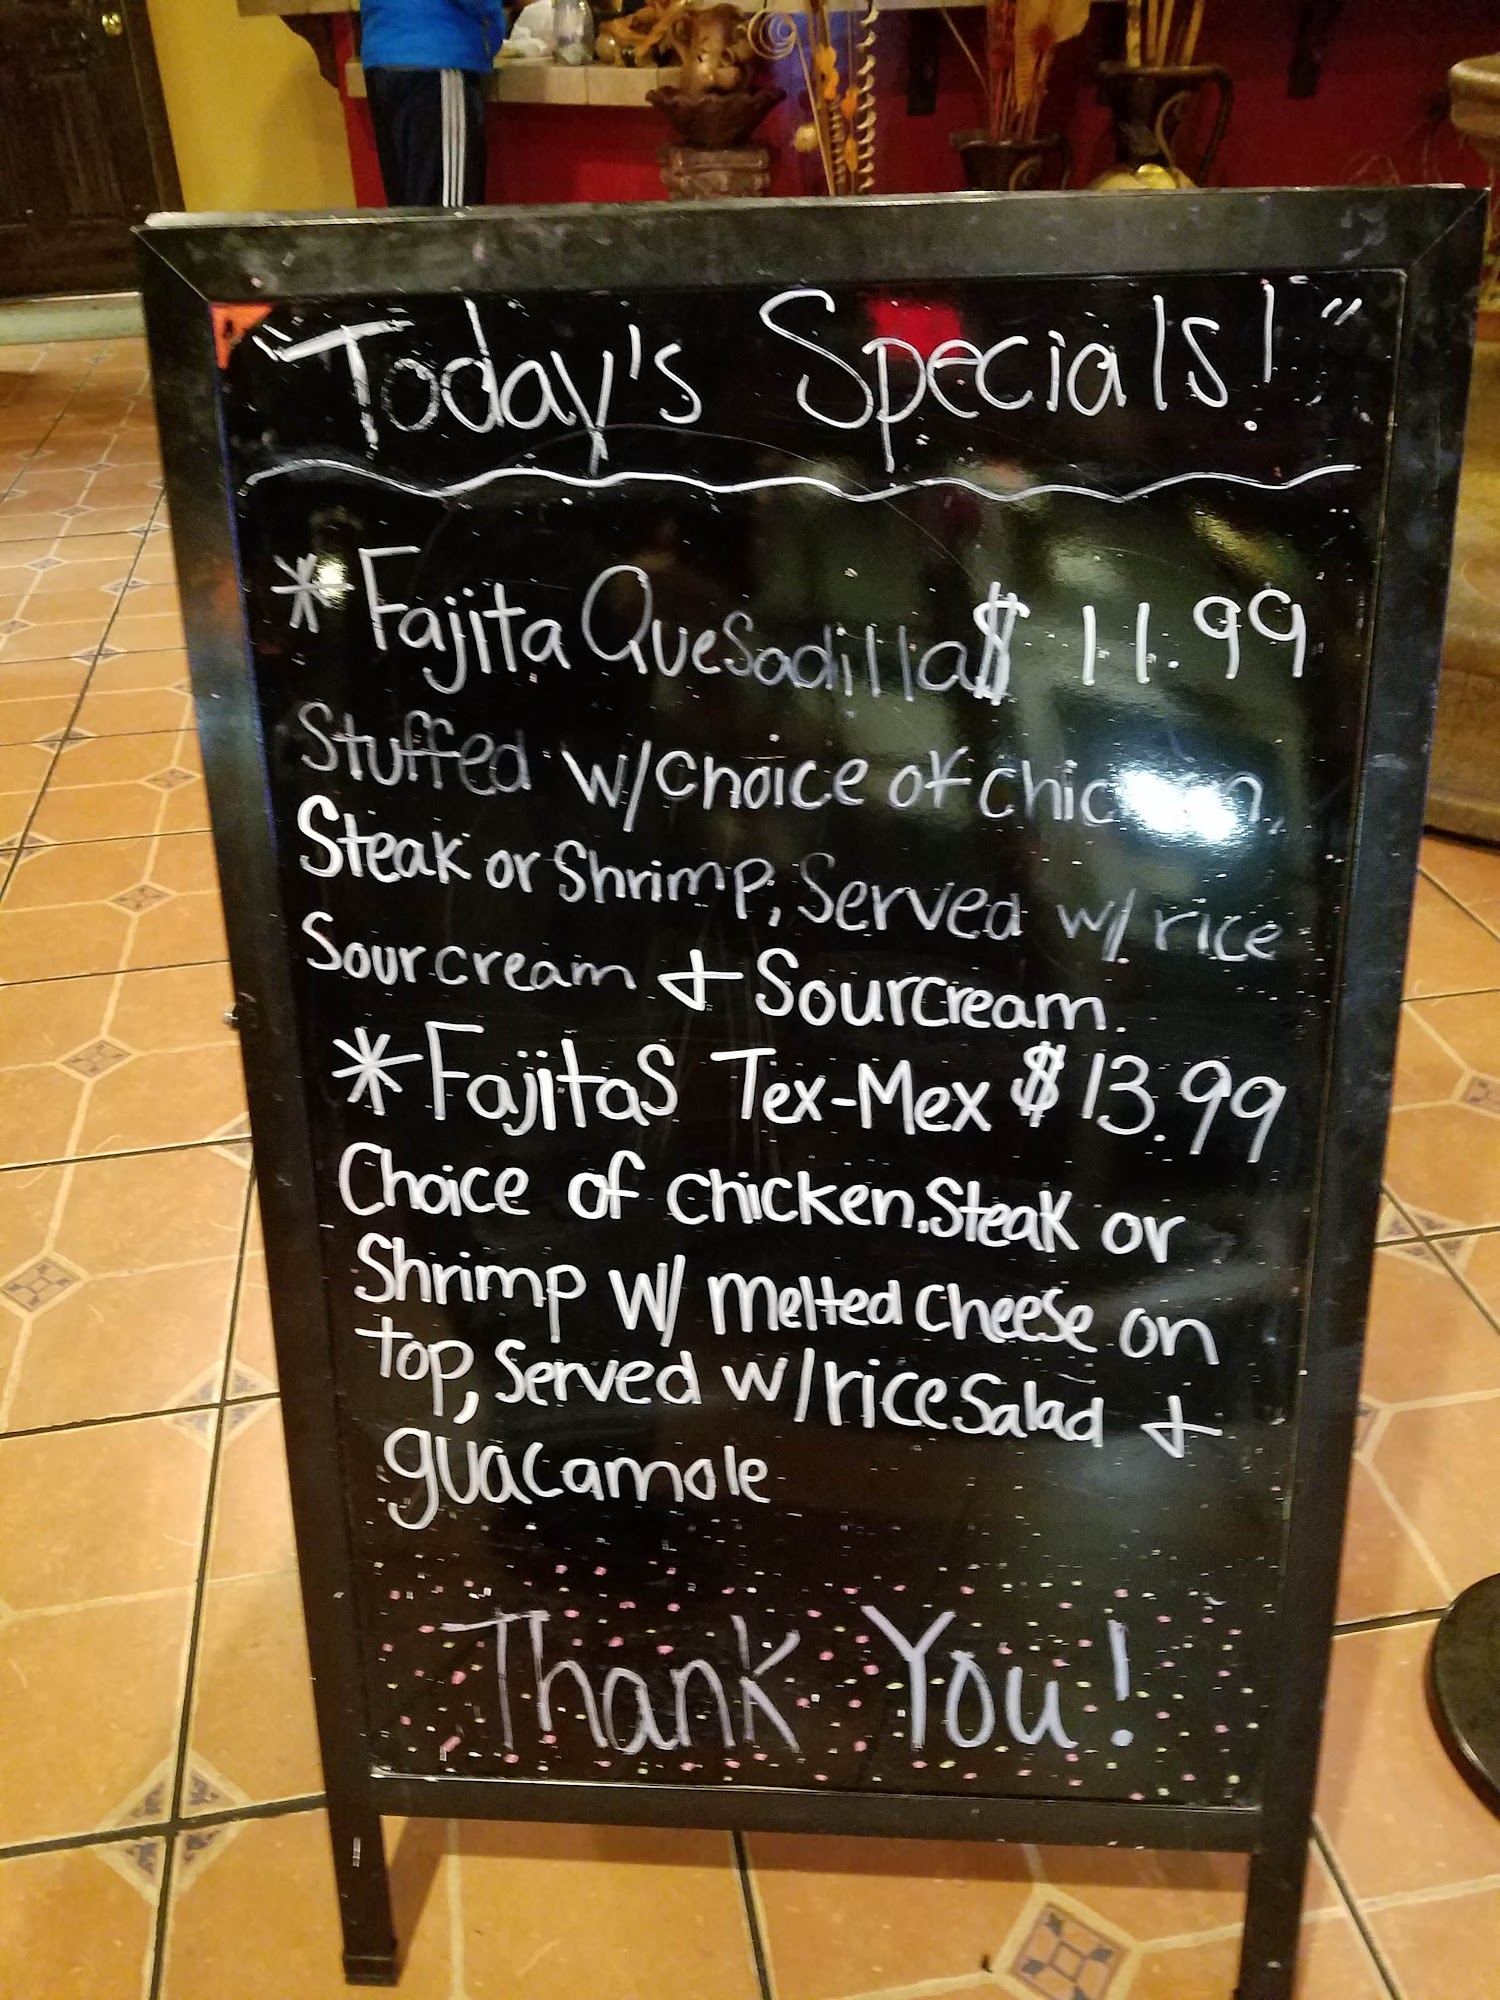 "Today's Specials!"
* Fajita Quesadilla $ 11.99
Stuffed w/choice of chicken,
Steak or Shrimp, Served w/ rice
Sour cream & Sourcream.
* Fajitas Tex-Mex $13.99
Choice of chicken. Steak or
Shrimp w/ melted cheese on
top, Served w/rice Salad &
guacamole
Thank You!